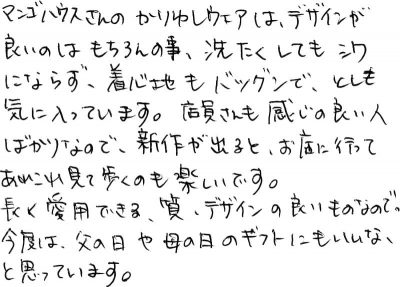 マンゴハウスさんの かりゆしウェアは、デザインが
良いのは もちろんの事、洗たくしても シワ
にならず、着心地も バツグンで、とても
気に入っています。店員さんも 感じの良い人
ばかりなので、新作が 出ると、お店に行って
あれこれ見て歩くのも 楽しいです。
長く 愛用できる、質、デザインの良いものなので、
今度は、父の日や 母の日のギフトにもいいな、
と思っています。